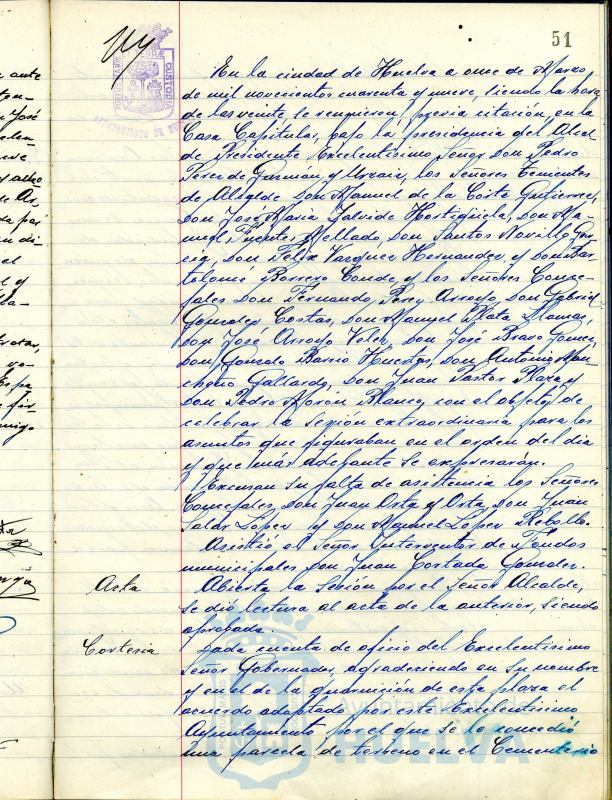 51
En la ciudad de Huelva a once de Marzo
de mil novecientos cuarenta y nueve, siendo la hora
de las veinte, se reunieron, previa citación, en la
Casa Capitular, bajo la presidencia del Alcal-
de Presidente Excelentísimo Señor Don Pedro
Perez de Guzmán y Urzaiz, los Señores Tenientes
de Alcalde Don Manuel de la Corte Gutierrez,
Don José María Jalvide Hortigüela, Don Ma-
nuel Fuentes Mellado, Don Santos Novillo Gar-
cia, Don Felix Vazquez Hernandez y Don Bar-
tolomé Borrero Conde, y los Señores Conce-
jales Don Fernando Perez Arroyo, Don Gabriel
Gonzalez Costas, Don Manuel Plata Llamas,
Don José Arroyo Velez, Don José Bravo Gomez,
Don Gonzalo Barrio Huertas, Don Antonio Man-
cheño Gallardo, Don Juan Pastor Plaza y
Don Pedro Morón Blanco, con el objeto de
celebrar la sesión extraordinaria para los
asuntos que figuraban en el orden del dia
y que más adelante se expresarán.
Excusan su falta de asistencia los Señores
Concejales, Don Juan Orta y Orta, Don Juan
Salar Lopez y Don Manuel Lopez Rebollo.
Asistió el Señor Interventor de Fondos
municipales Don Juan Cortada Gonzalez.
Acta
Abierta la Sesión por el Señor Alcalde,
se dió lectura al acta de la anterior, siendo
aprobada.
Cortesia
Dada cuenta de oficio del Excelentísimo
Señor Gobernador, agradeciendo en su nombre
y en el de la guarnición de esta plaza el
acuerdo adoptado por este Excelentísimo
Ayuntamiento por el que se le concedió
una parcela de terreno en el Cementerio
HUELVA